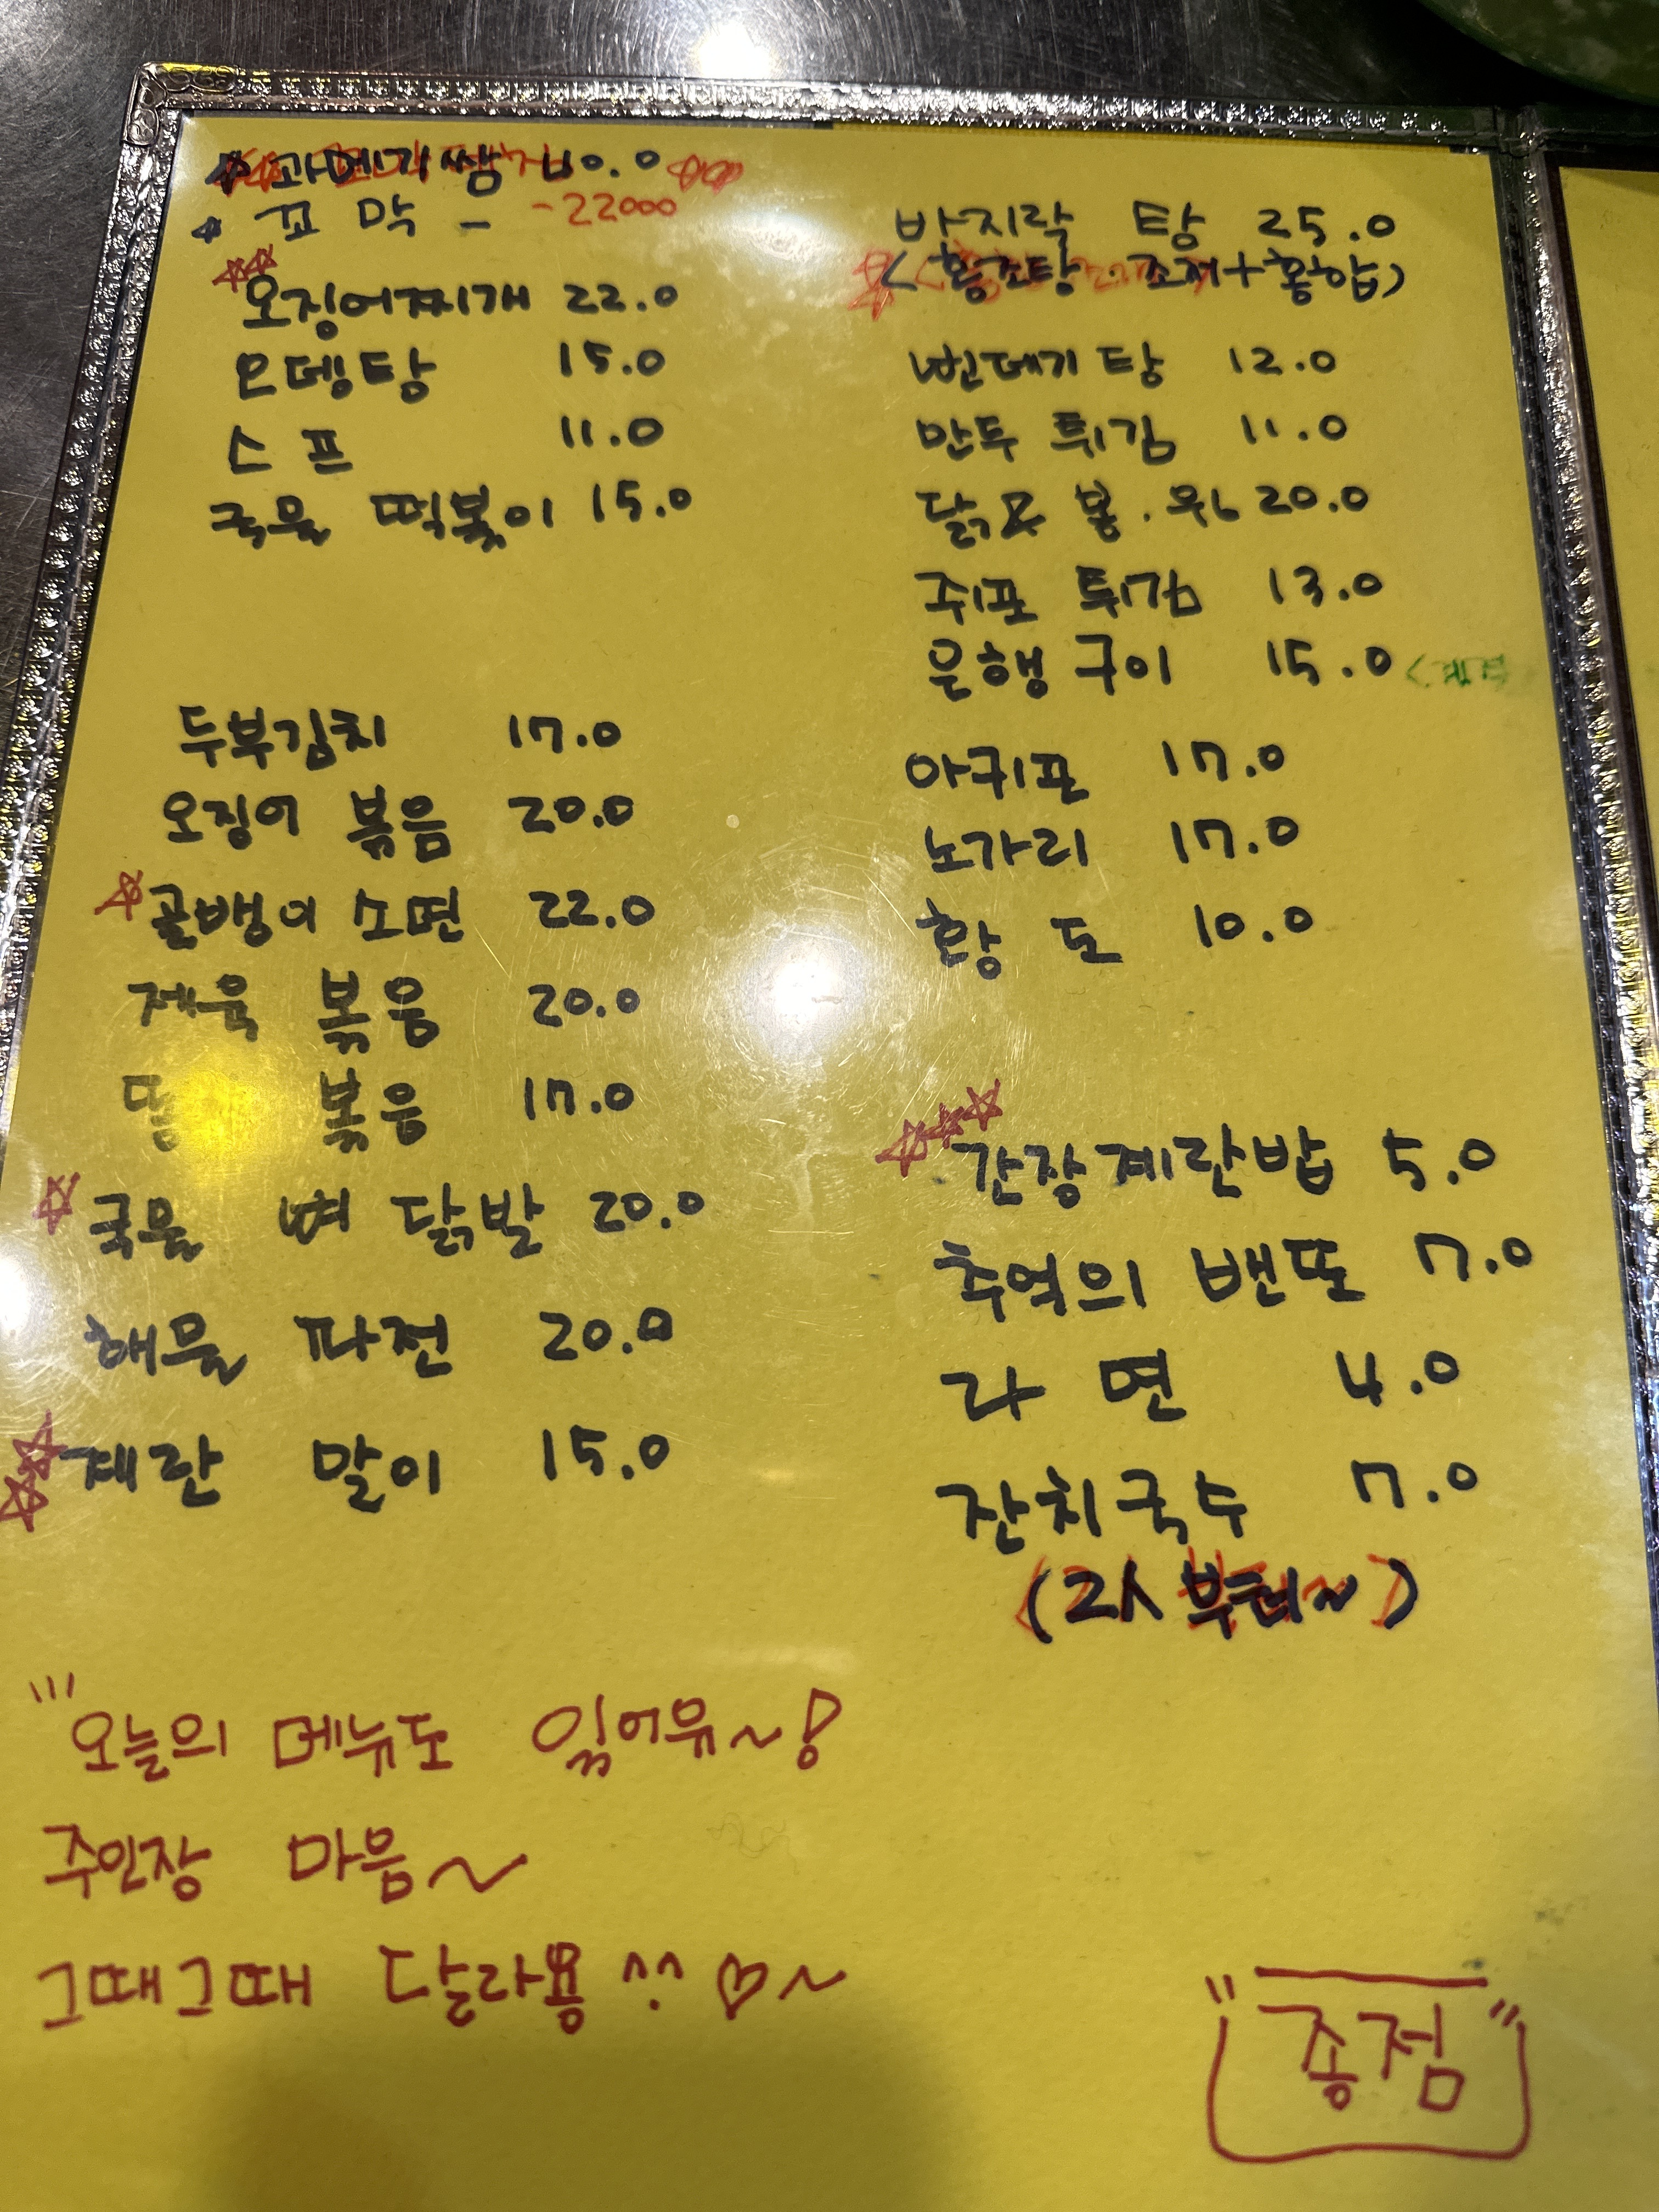 과메기쌈 40.0
꼬막 - -22000
오징어찌개 22.0
오뎅탕 15.0
스프 11.0
국물 떡볶이 15.0
두부김치 17.0
오징어 볶음 20.0
골뱅이 소면 22.0
제육 볶음 20.0
볶음 17.0
국물 뼈 닭발 20.0
해물 파전 20.0
계란 말이 15.0
바지락 탕 25.0
(홍조탕 . 조개+홍합)
번데기 탕 12.0
만두 튀김 11.0
봉 . 20.0
쥐포 튀김 13.0
은행 구이 15.0
아귀포 17.0
노가리 17.0
황도 10.0
간장계란밥 5.0
추억의 밴또 7.0
라면 4.0
잔치국수 7.0
(2人 부터~)
오늘의 메뉴도 있어유~!
주인장 마음~
그때그때 달라용 ^.^ ♡~
"종점"